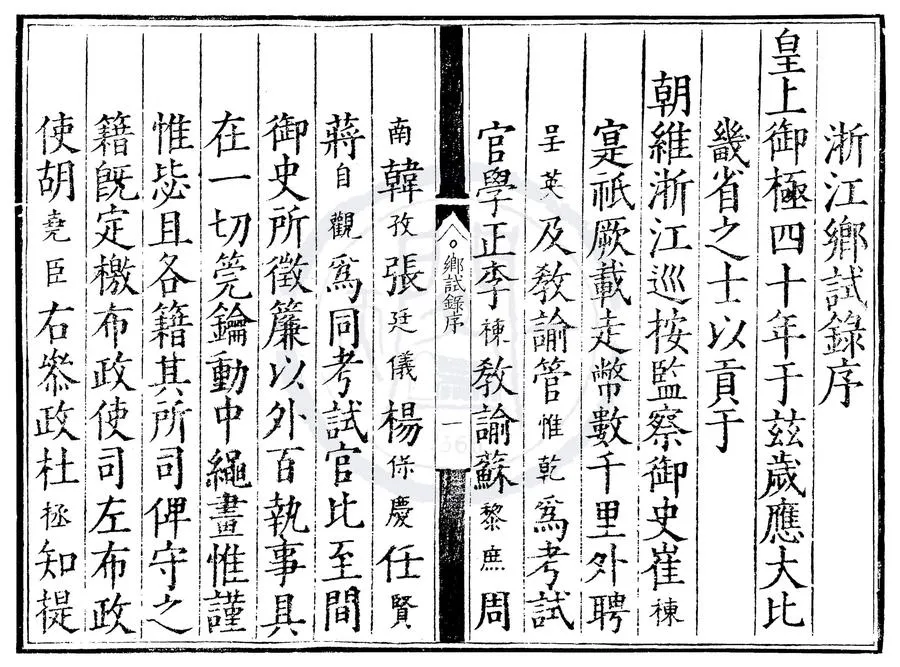 浙江鄉試錄序
皇上御極四十年于茲歲應大比
畿省之士以貢于
朝維浙江巡按監察御史崔棟
寔祇厥載走幣數千里外聘
官學正李棟教諭蘇黎庶周
呈英及教諭管惟乾爲考試
南韓孜張廷儀楊保慶任賢
蔣自觀爲同考試官比至間
御史所徵簾以外百執事具
在一切筦鑰動中繩畫惟謹
惟毖且各籍其所司俾守之
籍旣定檄布政使司左布政
使胡堯臣右叅政杜拯知提
鄉試錄序
一